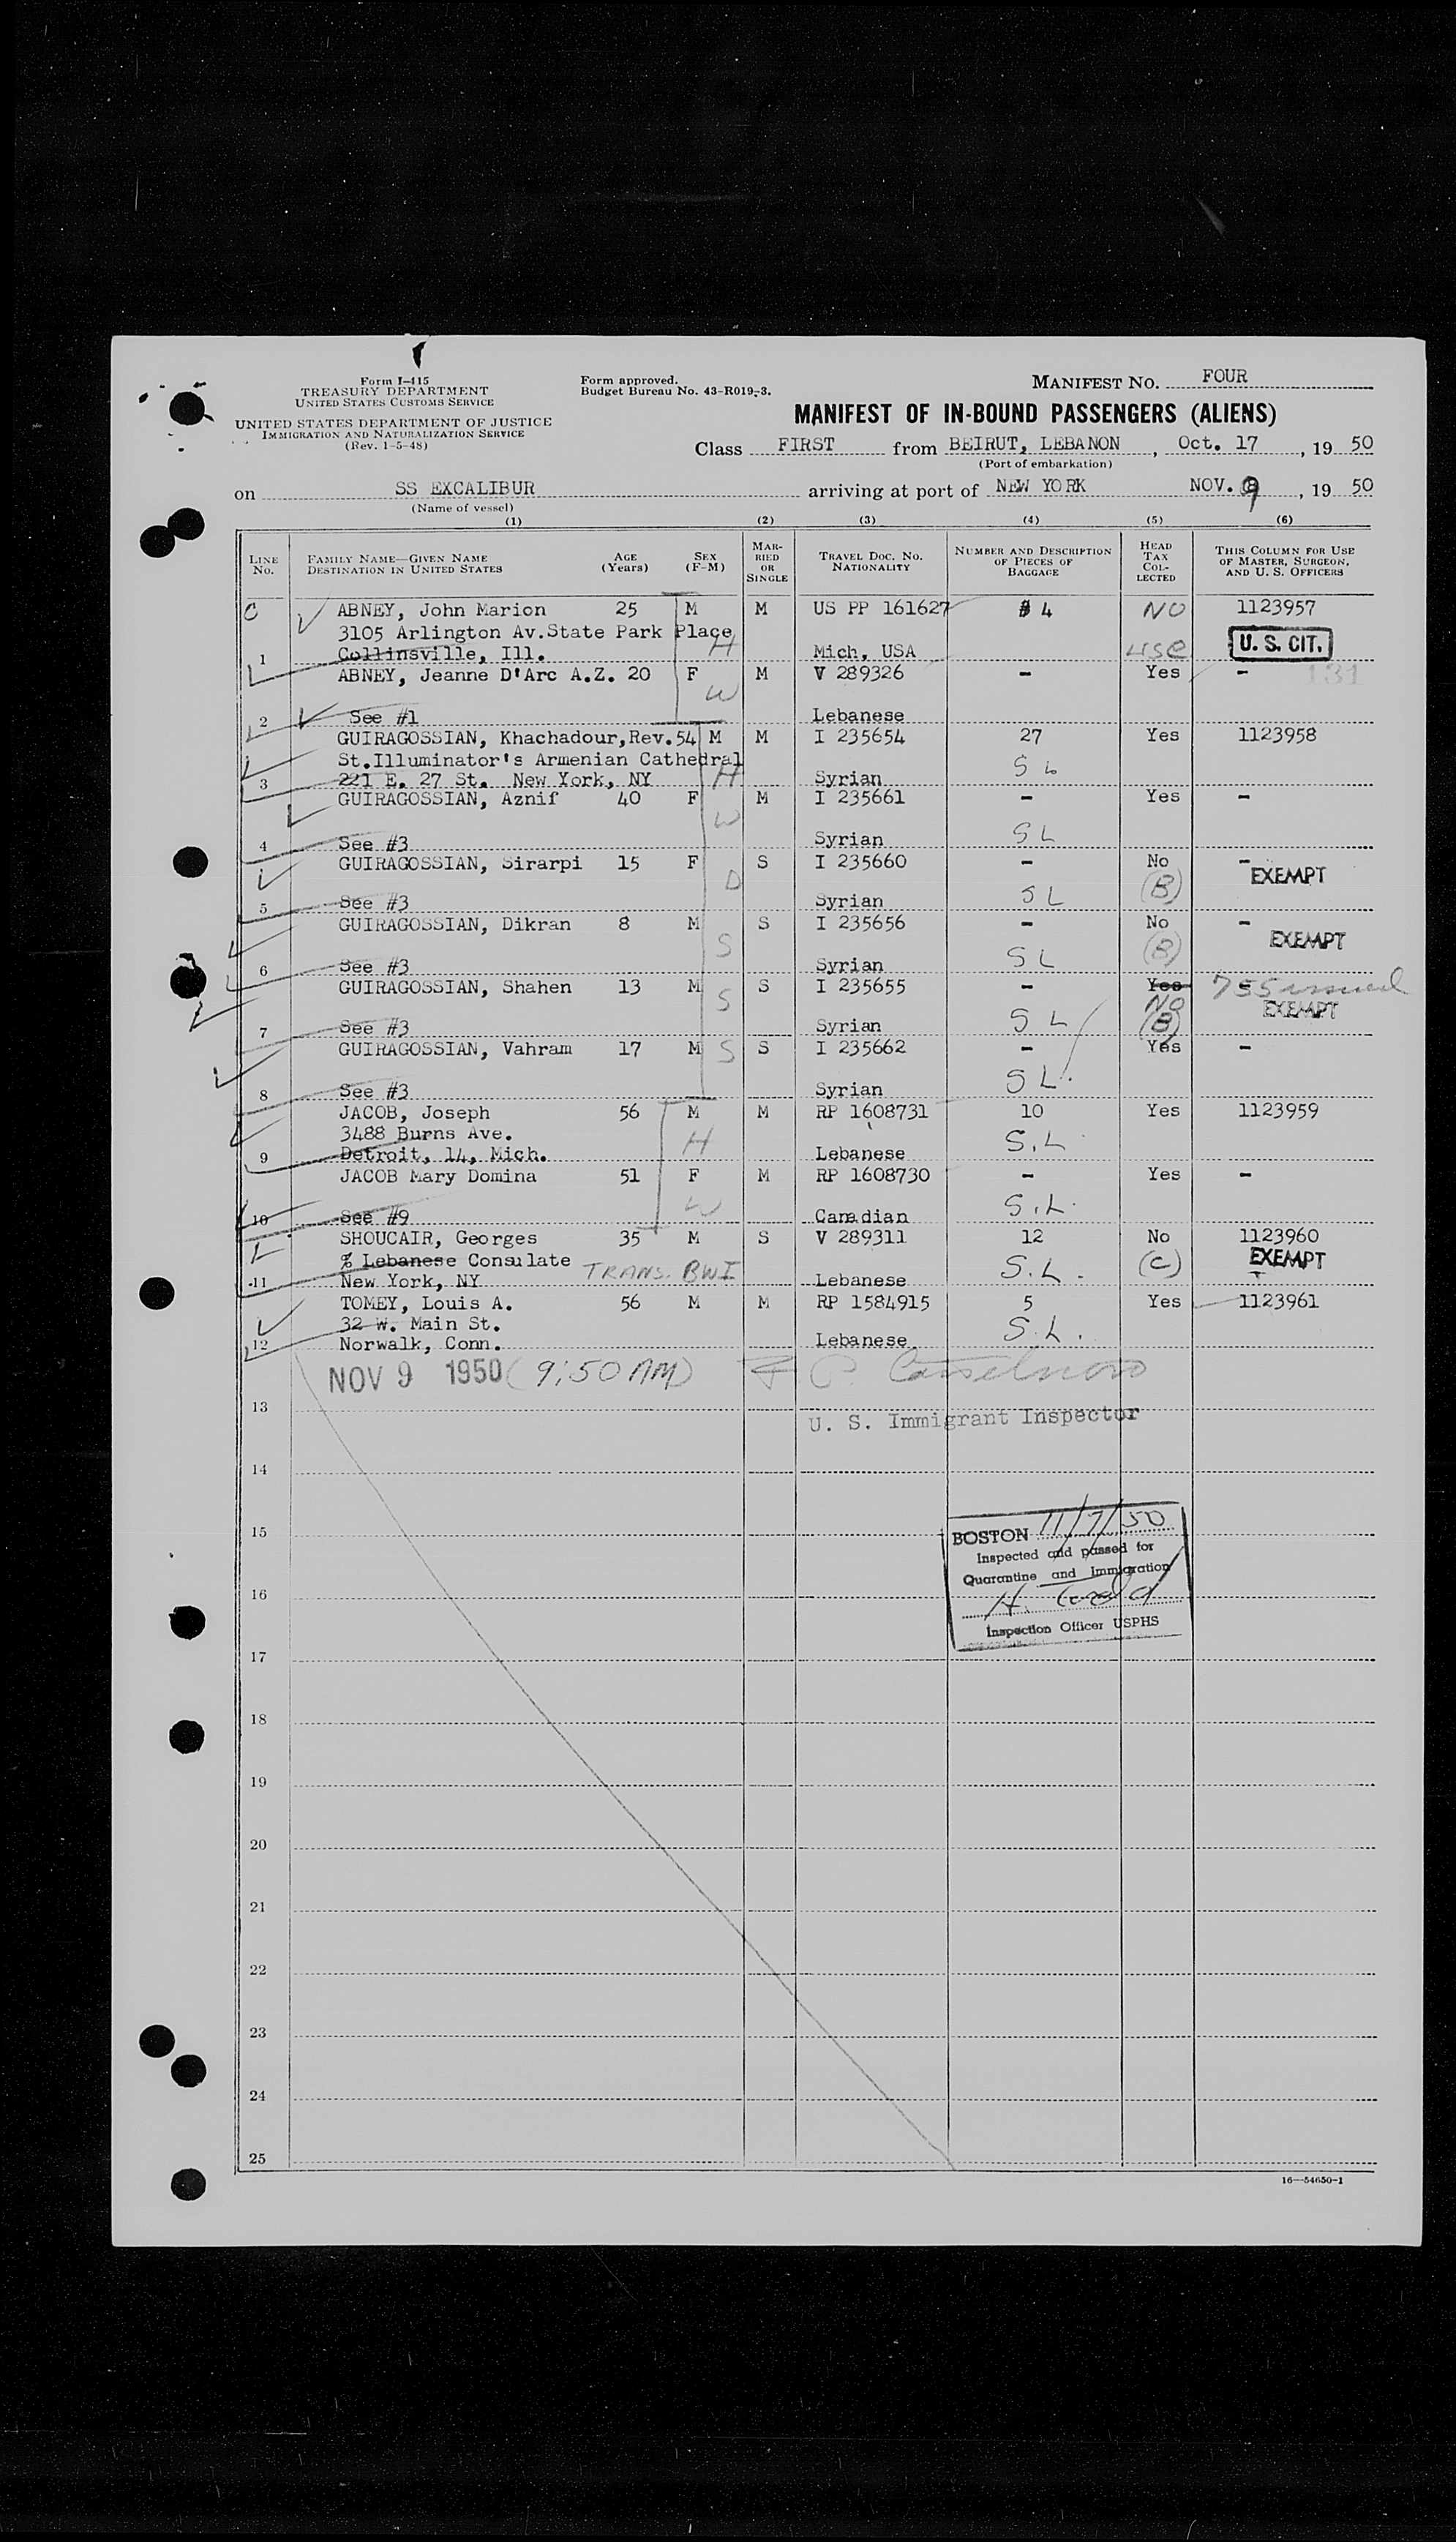 Form I-415
TREASURY DEPARTMENT
UNITED STATES CUSTOMS SERVICE
UNITED STATES DEPARTMENT OF JUSTICE
IMMIGRATION AND NATURALIZATION SERVICE
(Rev. 1-5-48)
Form approved.
Budget Bureau No. 43-R019-3.
MANIFEST NO. FOUR
MANIFEST OF IN-BOUND PASSENGERS (ALIENS)
Class FIRST from BEIRUT, LEBANON, Oct. 17, 19 50
(Port of embarkation)
on SS EXCALIBUR arriving at port of NEW YORK NOV. 9, 19 50
(Name of vessel)
(1) (2) (3) (4) (5) (6)
LINE NO.
FAMILY NAME—GIVEN NAME
DESTINATION IN UNITED STATES
AGE (Years)
SEX (F-M)
MARRIED OR SINGLE
TRAVEL DOC. NO. NATIONALITY
NUMBER AND DESCRIPTION OF PIECES OF BAGGAGE
HEAD TAX COLLECTED
THIS COLUMN FOR USE OF MASTER, SURGEON, AND U. S. OFFICERS
C ABNEY, John Marion 25 M M US PP 161627 4 NO 1123957
3105 Arlington Av.State Park Place H USC U. S. CIT.
1 Collinsville, Ill. Mich, USA
ABNEY, Jeanne D'Arc A.Z. 20 F M V 289326 - Yes -
W
2 See #1 Lebanese
GUIRAGOSSIAN, Khachadour,Rev. 54 M M I 235654 27 Yes 1123958
St.Illuminator's Armenian Cathedral S L
3 221 E. 27 St. New York, NY H Syrian
GUIRAGOSSIAN, Aznif 40 F M I 235661 - Yes -
W
4 See #3 Syrian S L
GUIRAGOSSIAN, Sirarpi 15 F S I 235660 - No -
D (B) EXEMPT
5 See #3 Syrian S L
GUIRAGOSSIAN, Dikran 8 M S I 235656 - No -
S (B) EXEMPT
6 See #3 Syrian S L
GUIRAGOSSIAN, Shahen 13 M S I 235655 - Yes 755 issued
S NO EXEMPT
7 See #3 Syrian S L (B)
GUIRAGOSSIAN, Vahram 17 M S S I 235662 - Yes -
8 See #3 Syrian S L
JACOB, Joseph 56 M M RP 1608731 10 Yes 1123959
3488 Burns Ave. H S.L.
9 Detroit, 14, Mich. Lebanese
JACOB Mary Domina 51 F M RP 1608730 - Yes -
W
10 See #9 Canadian S.L.
SHOUCAIR, Georges 35 M S V 289311 12 No 1123960
% Lebanese Consulate TRANS. BWI S.L. (C) EXEMPT
11 New York, NY Lebanese
TOMEY, Louis A. 56 M M RP 1584915 5 Yes 1123961
32 W. Main St. S.L.
12 Norwalk, Conn. Lebanese
NOV 9 1950 (9:50 AM)
13
U. S. Immigrant Inspector
14
15
BOSTON 11/7/50
Inspected and passed for
Quarantine and Immigration
16
H.
Inspection Officer USPHS
17
18
19
20
21
22
23
24
25
16—54650-1